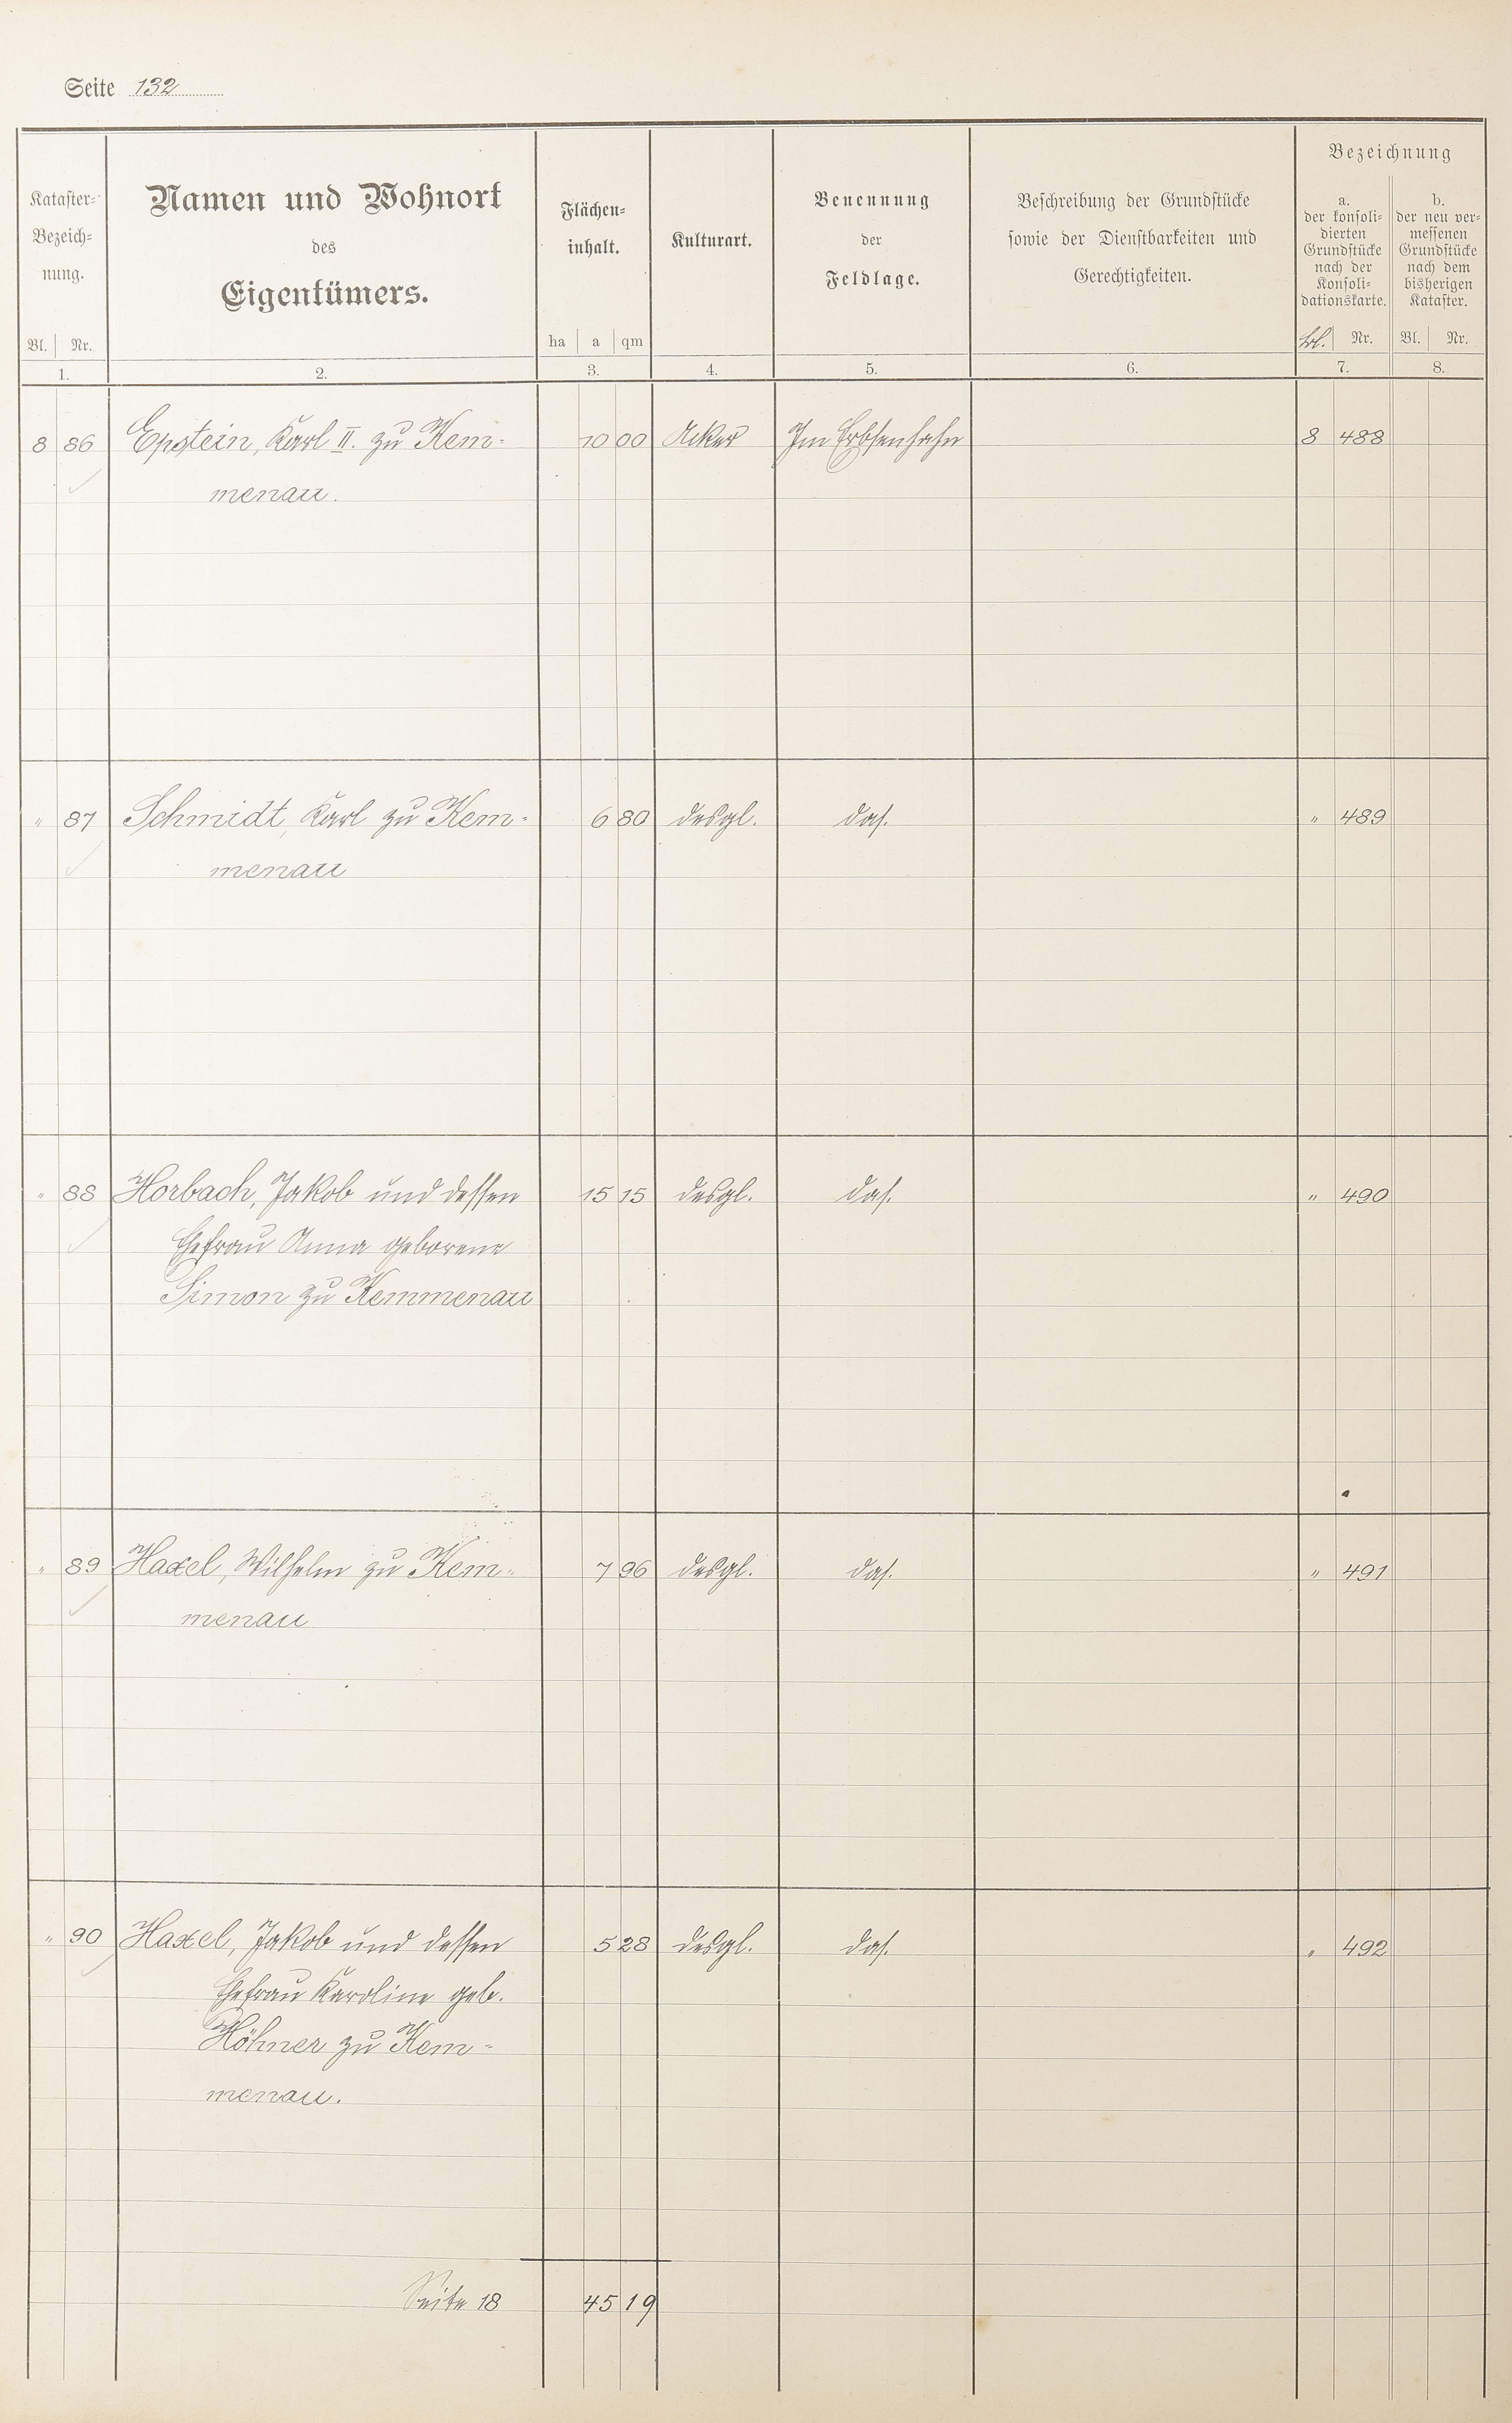 Seite 132
Kataster-
Bezeich-
nung.
Bl. Nr.
1.
Namen und Wohnort
des
Eigentümers.
2.
Flächen-
inhalt.
ha a qm
3.
Kulturart.
4.
Benennung
der
Feldlage.
5.
Beschreibung der Grundstücke
sowie der Dienstbarkeiten und
Gerechtigkeiten.
6.
Bezeichnung
a.
der konsoli-
dierten
Grundstücke
nach der
Konsoli-
dationskarte.
Bl. Nr.
7.
b.
der neu ver-
messenen
Grundstücke
nach dem
bisherigen
Kataster.
Bl. Nr.
8.
8 86 Epstein, Karl II. zu Kem- 10 00 Acker Im Erbsenhahn 8 488
menau.
" 87 Schmidt, Karl zu Kem- 6 80 desgl. das. " 489
menau
" 88 Horbach, Jakob und dessen 15 15 desgl. das. " 490
Ehefrau Anna geborene
Simon zu Kemmenau
" 89 Haxel, Wilhelm zu Kem- 7 96 desgl. das. " 491
menau
" 90 Haxel, Jakob und dessen 5 28 desgl. das. " 492
Ehefrau Karoline geb.
Höhner zu Kem-
menau.
Seite 18 45 19